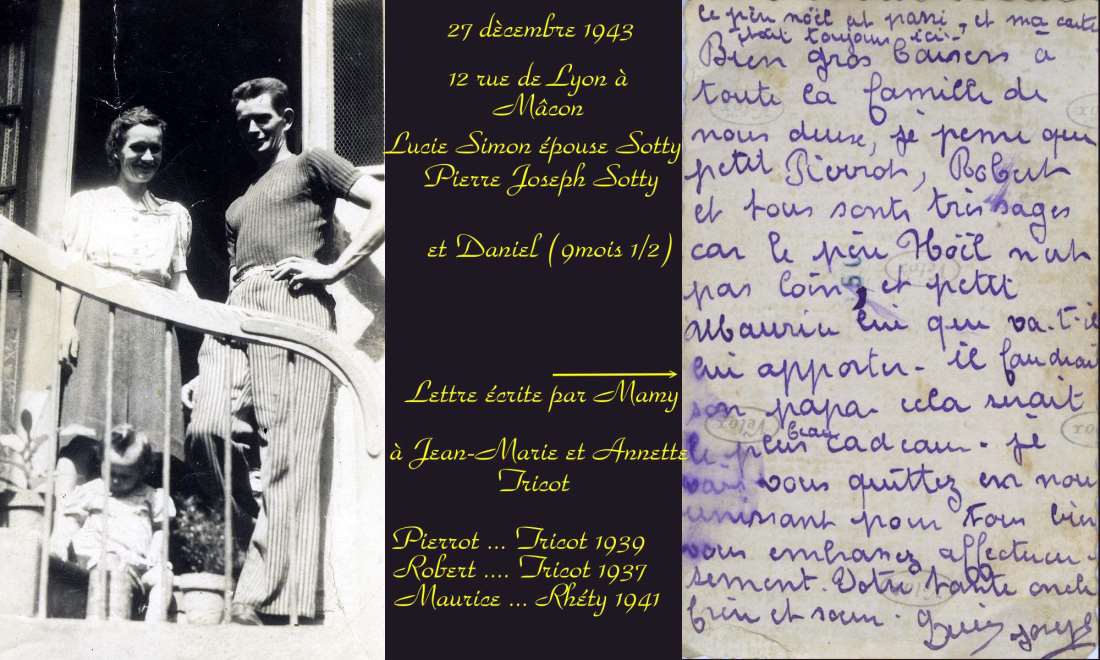 27 dècembre 1943
12 rue de Lyon à
Mâcon
Lucie Simon épouse Sotty
Pierre Joseph Sotty
et Daniel (9mois 1/2)
Lettre écrite par Mamy
à Jean-Marie et Annette
Tricot
Pierrot ... Tricot 1939
Robert .... Tricot 1937
Maurice ... Rhéty 1941
le pèr nöel et passi, et ma carte
était toujours ici.
Bien gros baisers à
toute la famille de
nous deux, je pense que
petit Pierrot, Robert
et tous sonts très sages
car le pèr Noël n'est
pas loin, et petit
Maurice lui que va-t-il
lui apporter. il faudrait
son papa. cela serait
le plus beau cadeau. je
vous quittez en nous
unissant pour tous bien
vous embrassez affectueu
sement. Votre tante oncle
frère et sœur.
Joseph